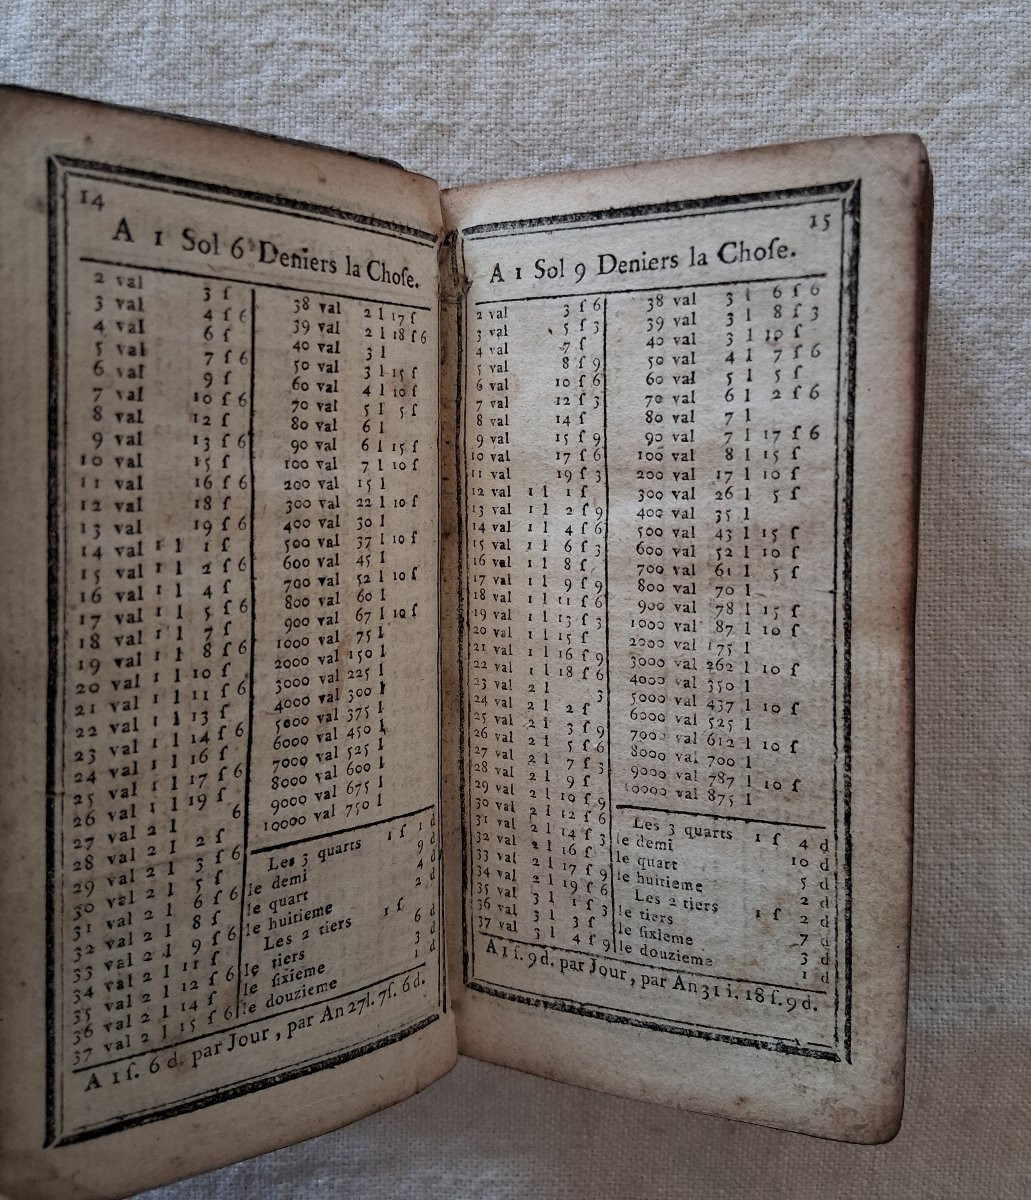 14
A 1 Sol 6 Deniers la Choſe.
2 val 3 ſ
3 val 4 ſ 6
4 val 6 ſ
5 val 7 ſ 6
6 val 9 ſ
7 val 10 ſ 6
8 val 12 ſ
9 val 13 ſ 6
10 val 15 ſ
11 val 16 ſ 6
12 val 18 ſ
13 val 19 ſ 6
14 val 1 l 1 ſ
15 val 1 l 2 ſ 6
16 val 1 l 4 ſ
17 val 1 l 5 ſ 6
18 val 1 l 7 ſ
19 val 1 l 8 ſ 6
20 val 1 l 10 ſ
21 val 1 l 11 ſ 6
22 val 1 l 13 ſ
23 val 1 l 14 ſ 6
24 val 1 l 16 ſ
25 val 1 l 17 ſ 6
26 val 1 l 19 ſ
27 val 2 l 6
28 val 2 l 2 ſ
29 val 2 l 3 ſ 6
30 val 2 l 5 ſ
31 val 2 l 6 ſ 6
32 val 2 l 8 ſ
33 val 2 l 9 ſ 6
34 val 2 l 11 ſ
35 val 2 l 12 ſ 6
36 val 2 l 14 ſ
37 val 2 l 15 ſ 6
38 val 2 l 17 ſ
39 val 2 l 18 ſ 6
40 val 3 l
50 val 3 l 15 ſ
60 val 4 l 10 ſ
70 val 5 l 5 ſ
80 val 6 l
90 val 6 l 15 ſ
100 val 7 l 10 ſ
200 val 15 l
300 val 22 l 10 ſ
400 val 30 l
500 val 37 l 10 ſ
600 val 45 l
700 val 52 l 10 ſ
800 val 60 l
900 val 67 l 10 ſ
1000 val 75 l
2000 val 150 l
3000 val 225 l
4000 val 300 l
5000 val 375 l
6000 val 450 l
7000 val 525 l
8000 val 600 l
9000 val 675 l
10000 val 750 l
Les 3 quarts 1 ſ 1 d
le demi 9 d
le quart 4 d
le huitieme 2 d
Les 2 tiers 1 ſ
le tiers 6 d
le ſixieme 3 d
le douzieme 1 d
A 1 ſ. 6 d. par Jour, par An 27 l. 7 ſ. 6 d.
15
A 1 Sol 9 Deniers la Choſe.
2 val 3 ſ 6
3 val 5 ſ 3
4 val 7 ſ
5 val 8 ſ 9
6 val 10 ſ 6
7 val 12 ſ 3
8 val 14 ſ
9 val 15 ſ 9
10 val 17 ſ 6
11 val 19 ſ 3
12 val 1 l 1 ſ
13 val 1 l 2 ſ 9
14 val 1 l 4 ſ 6
15 val 1 l 6 ſ 3
16 val 1 l 8 ſ
17 val 1 l 9 ſ 9
18 val 1 l 11 ſ 6
19 val 1 l 13 ſ 3
20 val 1 l 15 ſ
21 val 1 l 16 ſ 9
22 val 1 l 18 ſ 6
23 val 2 l 3
24 val 2 l 2 ſ
25 val 2 l 3 ſ 9
26 val 2 l 5 ſ 6
27 val 2 l 7 ſ 3
28 val 2 l 9 ſ
29 val 2 l 10 ſ 9
30 val 2 l 12 ſ 6
31 val 2 l 14 ſ 3
32 val 2 l 16 ſ
33 val 2 l 17 ſ 9
34 val 2 l 19 ſ 6
35 val 3 l 1 ſ 3
36 val 3 l 3 ſ
37 val 3 l 4 ſ 9
38 val 3 l 6 ſ 6
39 val 3 l 8 ſ 3
40 val 3 l 10 ſ
50 val 4 l 7 ſ 6
60 val 5 l 5 ſ
70 val 6 l 2 ſ 6
80 val 7 l
90 val 7 l 17 ſ 6
100 val 8 l 15 ſ
200 val 17 l 10 ſ
300 val 26 l 5 ſ
400 val 35 l
500 val 43 l 15 ſ
600 val 52 l 10 ſ
700 val 61 l 5 ſ
800 val 70 l
900 val 78 l 15 ſ
1000 val 87 l 10 ſ
2000 val 175 l
3000 val 262 l 10 ſ
4000 val 350 l
5000 val 437 l 10 ſ
6000 val 525 l
7000 val 612 l 10 ſ
8000 val 700 l
9000 val 787 l 10 ſ
10000 val 875 l
Les 3 quarts 1 ſ 4 d
le demi 10 d
le quart 5 d
le huitieme 2 d
Les 2 tiers 1 ſ 2 d
le tiers 7 d
le ſixieme 3 d
le douzieme 1 d
A 1 ſ. 9 d. par Jour, par An 31 l. 18 ſ. 9 d.